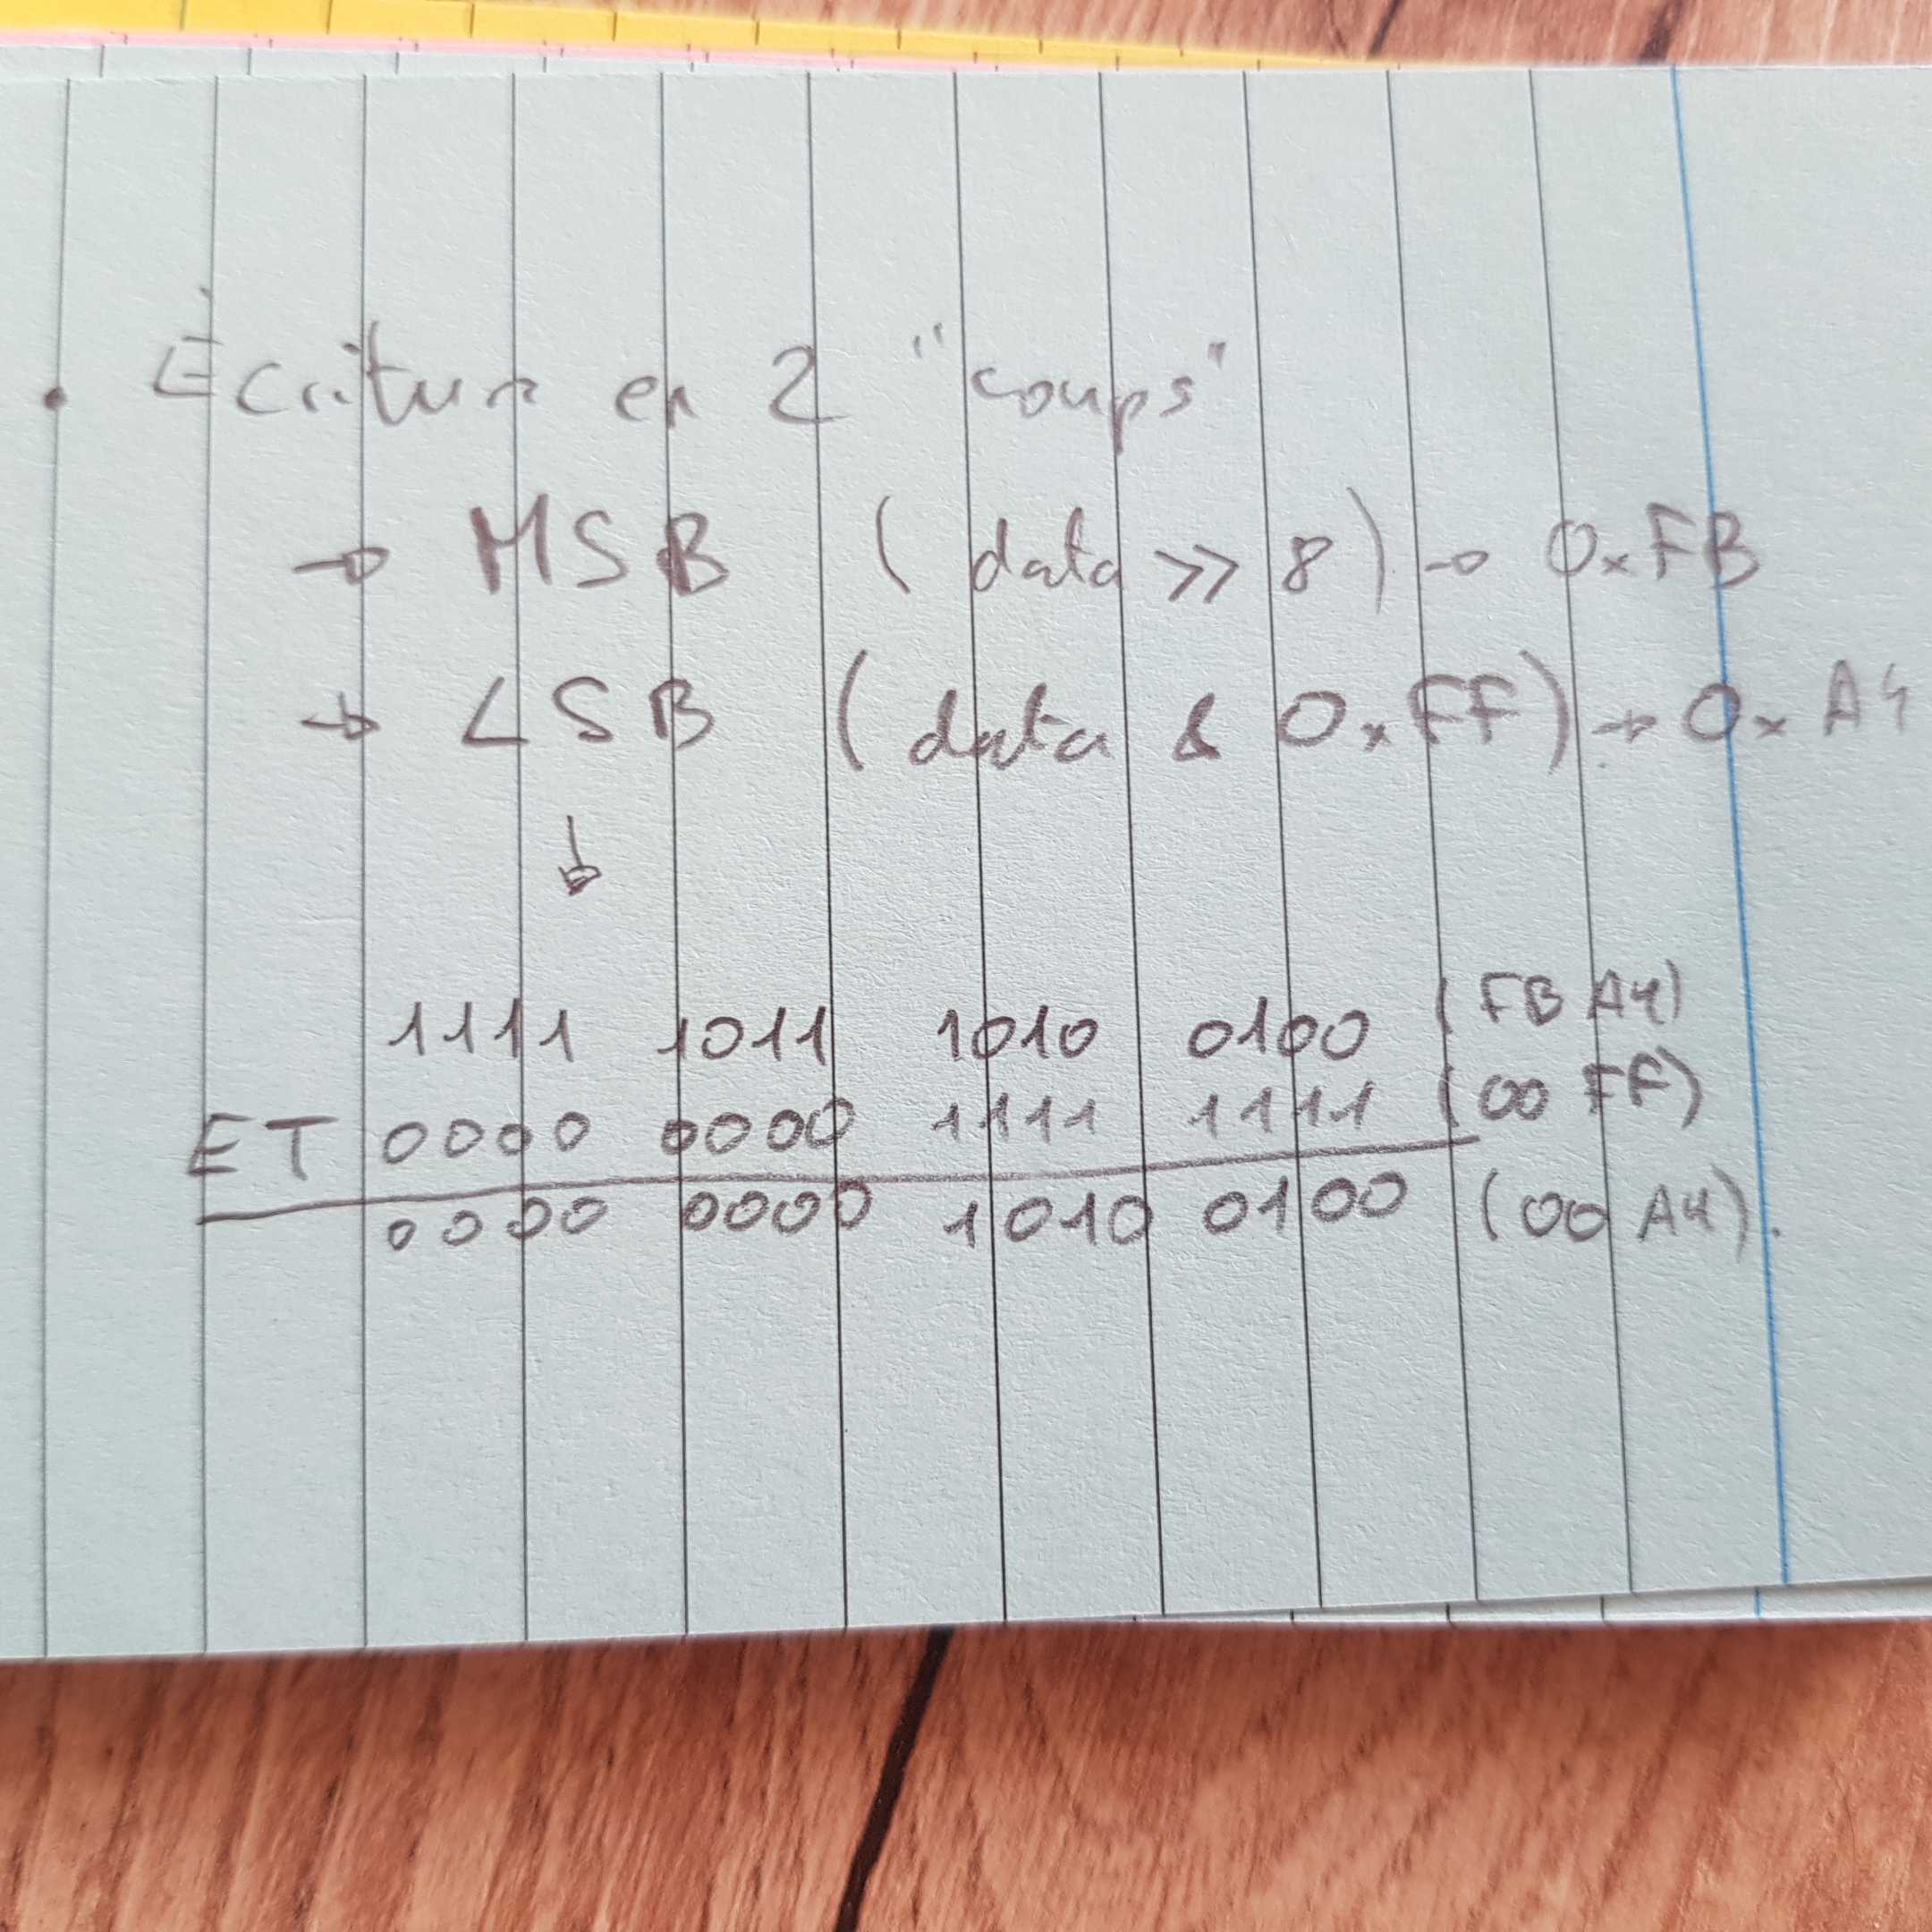 • Écriture en 2 "coups"
→ MSB (data >> 8) → 0xFB
→ LSB (data & 0xFF) → 0xA4
↓
1111 1011 1010 0100 (FB A4)
ET 0000 0000 1111 1111 (00 FF)
0000 0000 1010 0100 (00 A4).